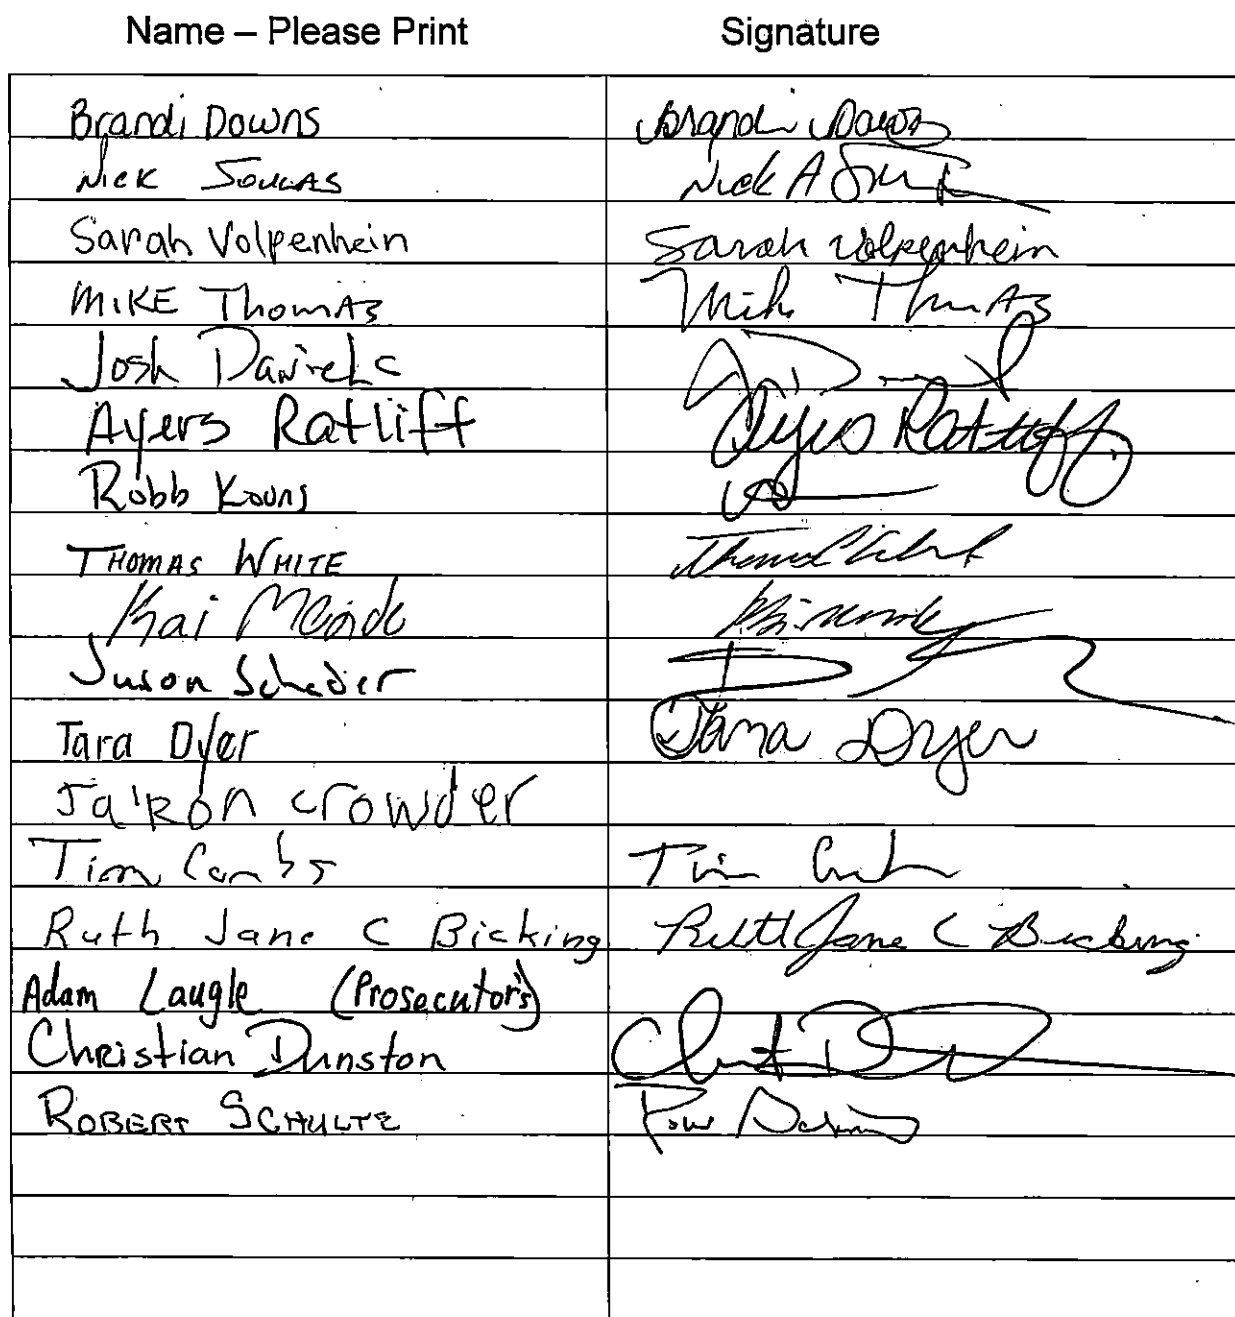 Name – Please Print Signature
Brandi Downs Brandi Downs
Nick Soulas Nick A
Sarah Volpenhein Sarah Volpenhein
MIKE ThomAs Mike ThomAs
Josh Daniels
Ayers Ratliff Ayers Ratliff
Robb Kouns
THOMAS WHITE Thomas White
Kai Meade
Juson Schader
Tara Dyer Tara Dyer
Ja'Ron crowder
Tim Combs Tim
Ruth Jane C Bicking Ruth Jane C Bicking
Adam Laugle (Prosecutor's)
Christian Dunston
ROBERT SCHULTE